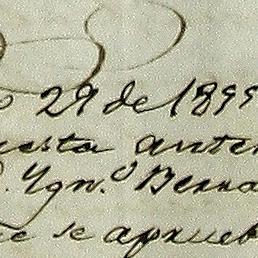 29 de 1899
uesta anter
Ygn.º Berna
se aprueb